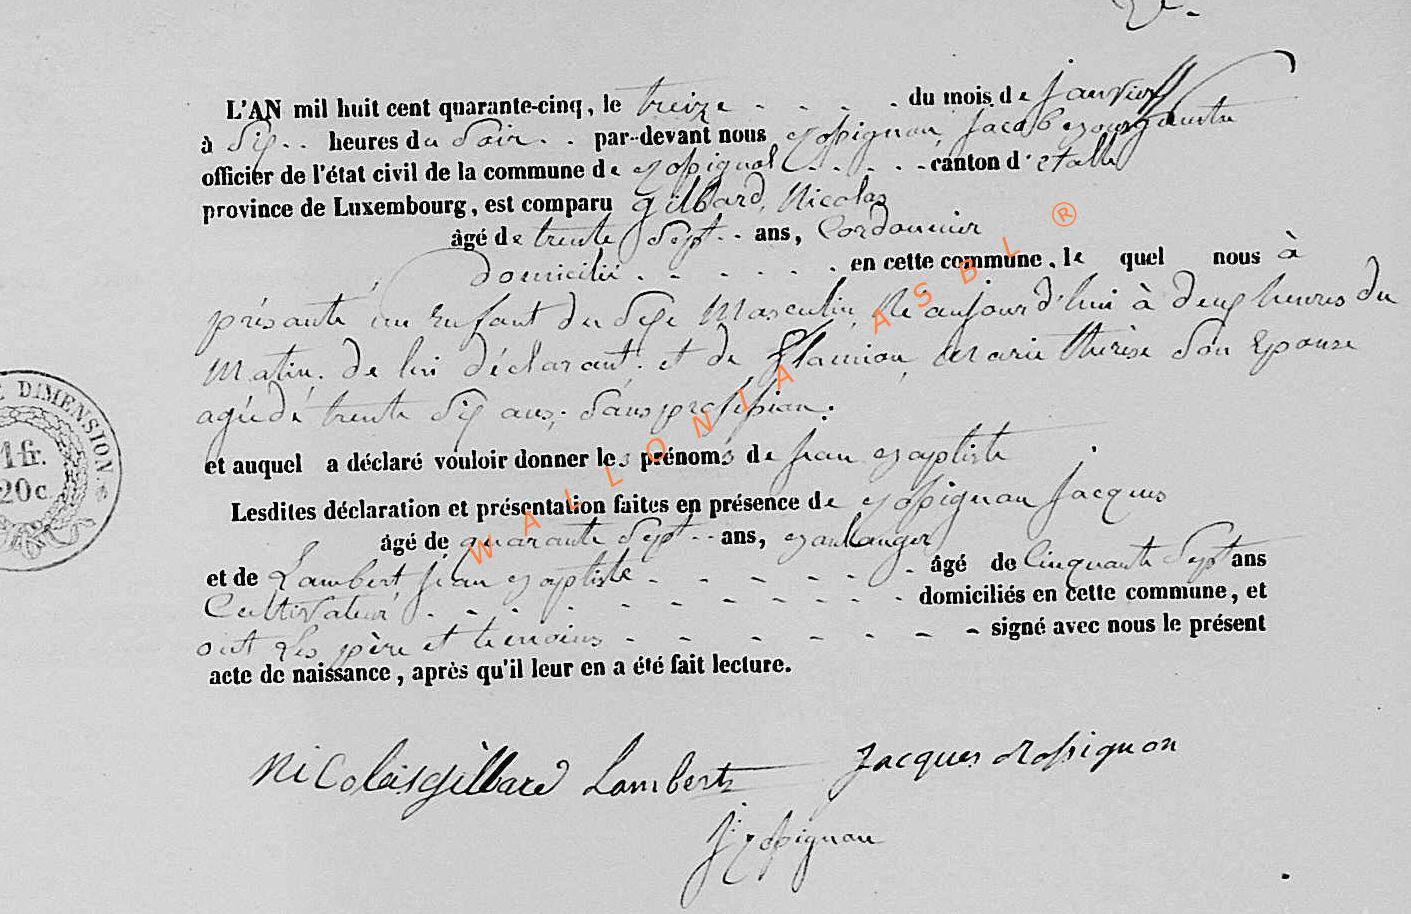 L'AN mil huit cent quarante-cinq, le treize du mois de janvier
à six heures du soir par-devant nous Rossignon, Jacob Bourguemestre
officier de l'état civil de la commune de Rossignol canton d'étalle
province de Luxembourg, est comparu gillard, Nicolas
âgé de trente sept ans, Cordonnier
domicilié en cette commune, le quel nous à
présanté un Enfant du Sexe Masculin, Né aujourd'hui à deux heures du
Matin. de lui déclarant. et de flamion, Marie thérèse Son Epouse
agée de trente Six ans, Sans profession.
et auquel a déclaré vouloir donner les prénoms de jean Baptiste
Lesdites déclaration et présentation faites en présence de Rossignon Jacques
âgé de quarante Sept ans, Boulanger
et de Lambert jean Baptiste âgé de Cinquante Sept ans
Cultivateur domiciliés en cette commune, et
ont Les père et temoins signé avec nous le présent
acte de naissance, après qu'il leur en a été fait lecture.
Nicolas gillard Lambert Jacques Rossignon
J: Rossignon
DIMENSION.
1 fr.
20 c.
WALLONIA ASBL ®